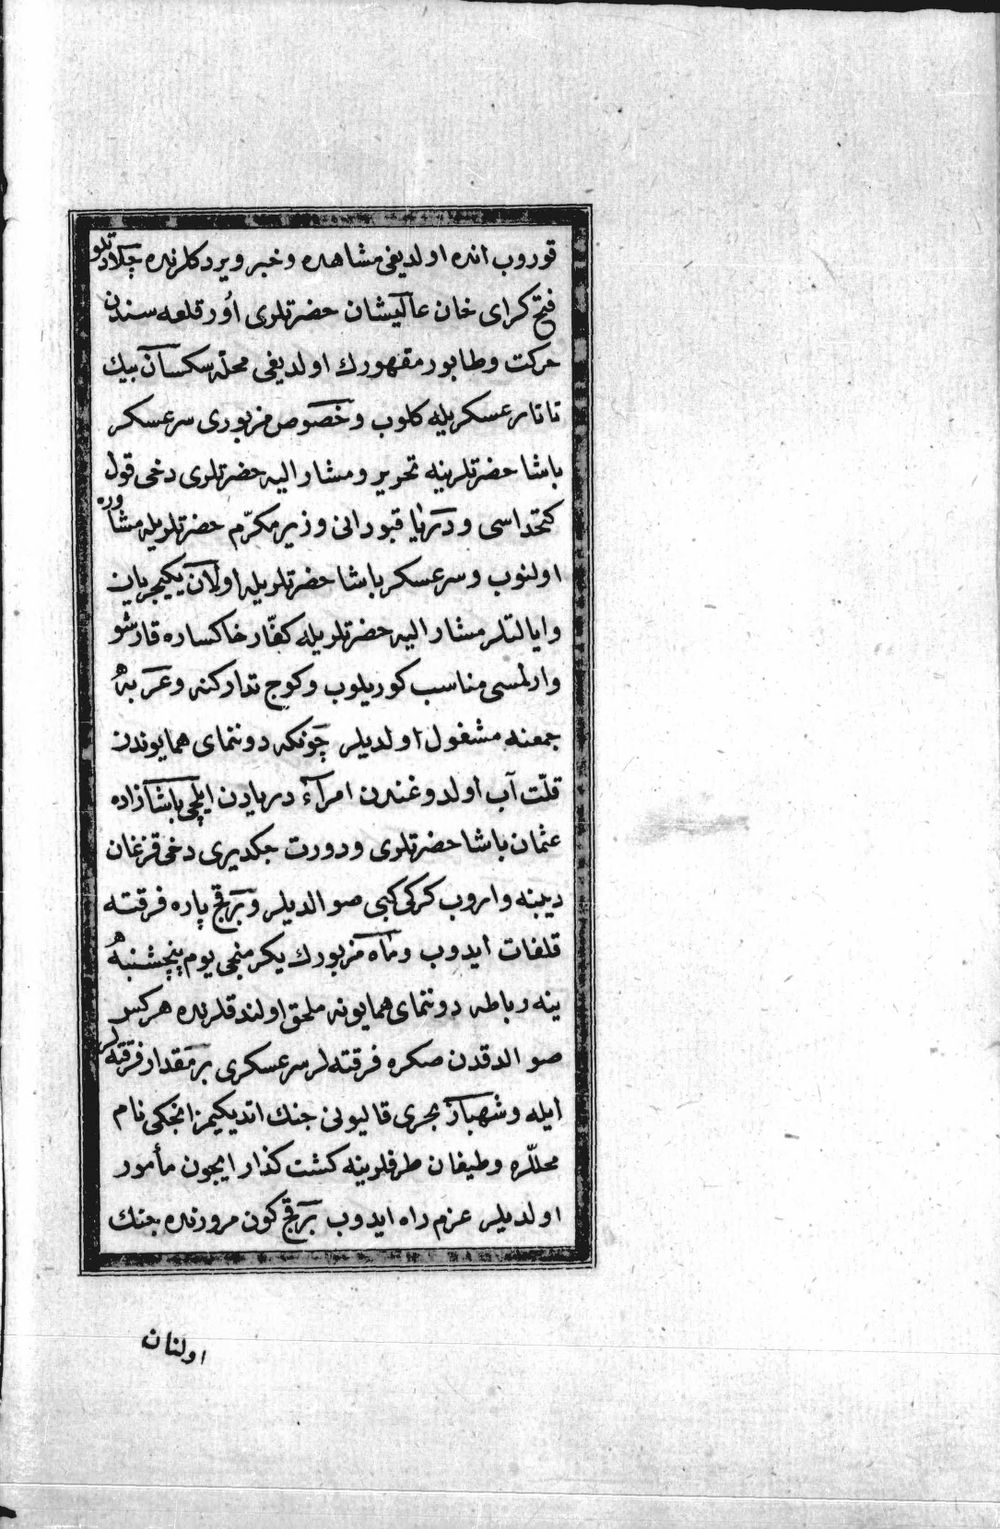 قوروب انده اولديغى مشاهده وخبر ويردكلرنده جلادتلو
فتح كراى خان عاليشان حضرتلرى اور قلعه سندن
حركت وطابور مقهورك اولديغى محله سكسان بيك
تاتار عسكريله كلوب وخصوص مزبورى سرعسكر
باشا حضرتلرينه تحرير ومشار اليه حضرتلرى دخى قول
كتخداسى ودريا قبودانى وزير مكرّم حضرتلريله مشاوره
اولنوب وسرعسكر باشا حضرتلريله اولان يكيچريان
وايالتلر مشار اليه حضرتلريله كفّار خاكساره قارشو
وارلمسى مناسب كوريلوب وكوج تداركنه وعربه
جمعنه مشغول اولديلر چونكه دوننماى همايوندن
قلّت آب اولدوغندن امراء دريادن ايلچى باشا زاده
عثمان باشا حضرتلرى ودورت چكديرى دخى قزغان
ديبنه واروب كركى كبى صو الديلر وبرقچ پاره فرقته
قلفات ايدوب وماه مزبورك يكرمنجى يوم پنچشنبه
ينه رباطه دوننماى همايونه ملحق اولندقلرنده هركس
صو الدقدن صكره فرقته لر سرعسكرى بر مقدار فرقته لر
ايله وشهباز بحرى قاليونى جنك اتديكيمز انجكى نام
محللره وطيغان طرفلرينه كشت كذار ايچون مأمور
اولديلر عزم راه ايدوب برقچ كون مرورنده جنك
اولنان